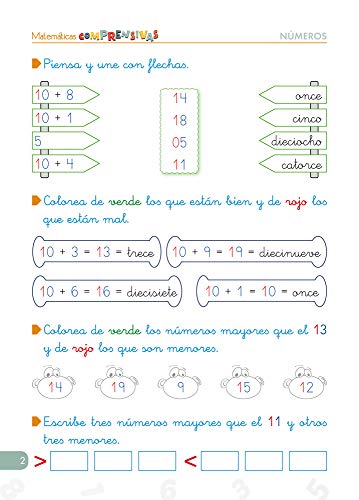 Matemáticas COMPRENSIVAS NÚMEROS
Piensa y une con flechas.
10 + 8 14 once
10 + 1 18 cinco
5 05 dieciocho
10 + 4 11 catorce
Colorea de verde los que están bien y de rojo los
que están mal.
10 + 3 = 13 = trece 10 + 9 = 19 = diecinueve
10 + 6 = 16 = diecisiete 10 + 1 = 10 = once
Colorea de verde los números mayores que el 13
y de rojo los que son menores.
14 19 9 15 12
Escribe tres números mayores que el 11 y otros
tres menores.
2 > <
8 1 6 3 5